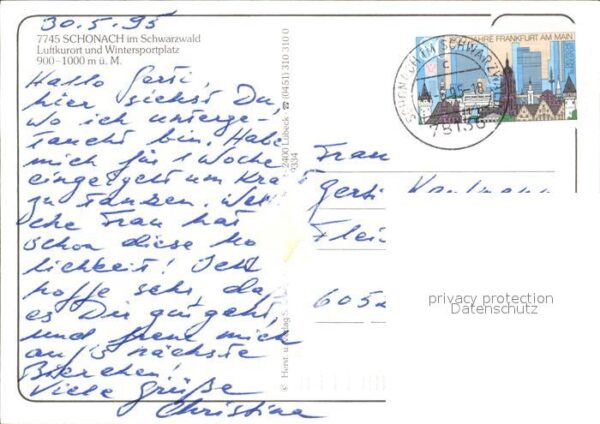 30.5.95
7745 SCHONACH im Schwarzwald
Luftkurort und Wintersportplatz
900-1000 m ü. M.
Hallo Gerti,
hier siehst Du,
wo ich unterge-
taucht bin. Habe
mich für 1 Woche
eingeigelt um Kra
zu tanken. Wel-
che Frau hat
schon diese Mö
lichkeit! Ich
hoffe sehr, daß
es Dir gut geht,
und freue mich
auf's nächste
Bierchen!
Viele Grüße
Christina
© Horst
2400 Lübeck ☎ (0451) 310 310 0
9334
JAHRE FRANKFURT AM MAIN
SCHONACH IM SCHWARZWALD
c
95-18
78136
Frau
Gerti Kaufmann
6052
privacy protection
Datenschutz